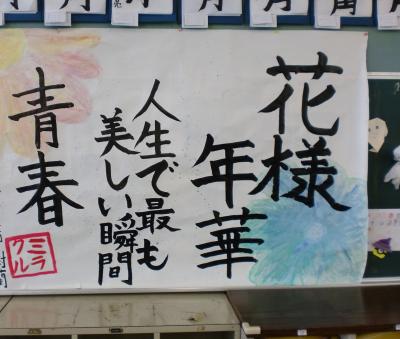 花様
年華
人生で最も
美しい瞬間
青春
ミラ
クル